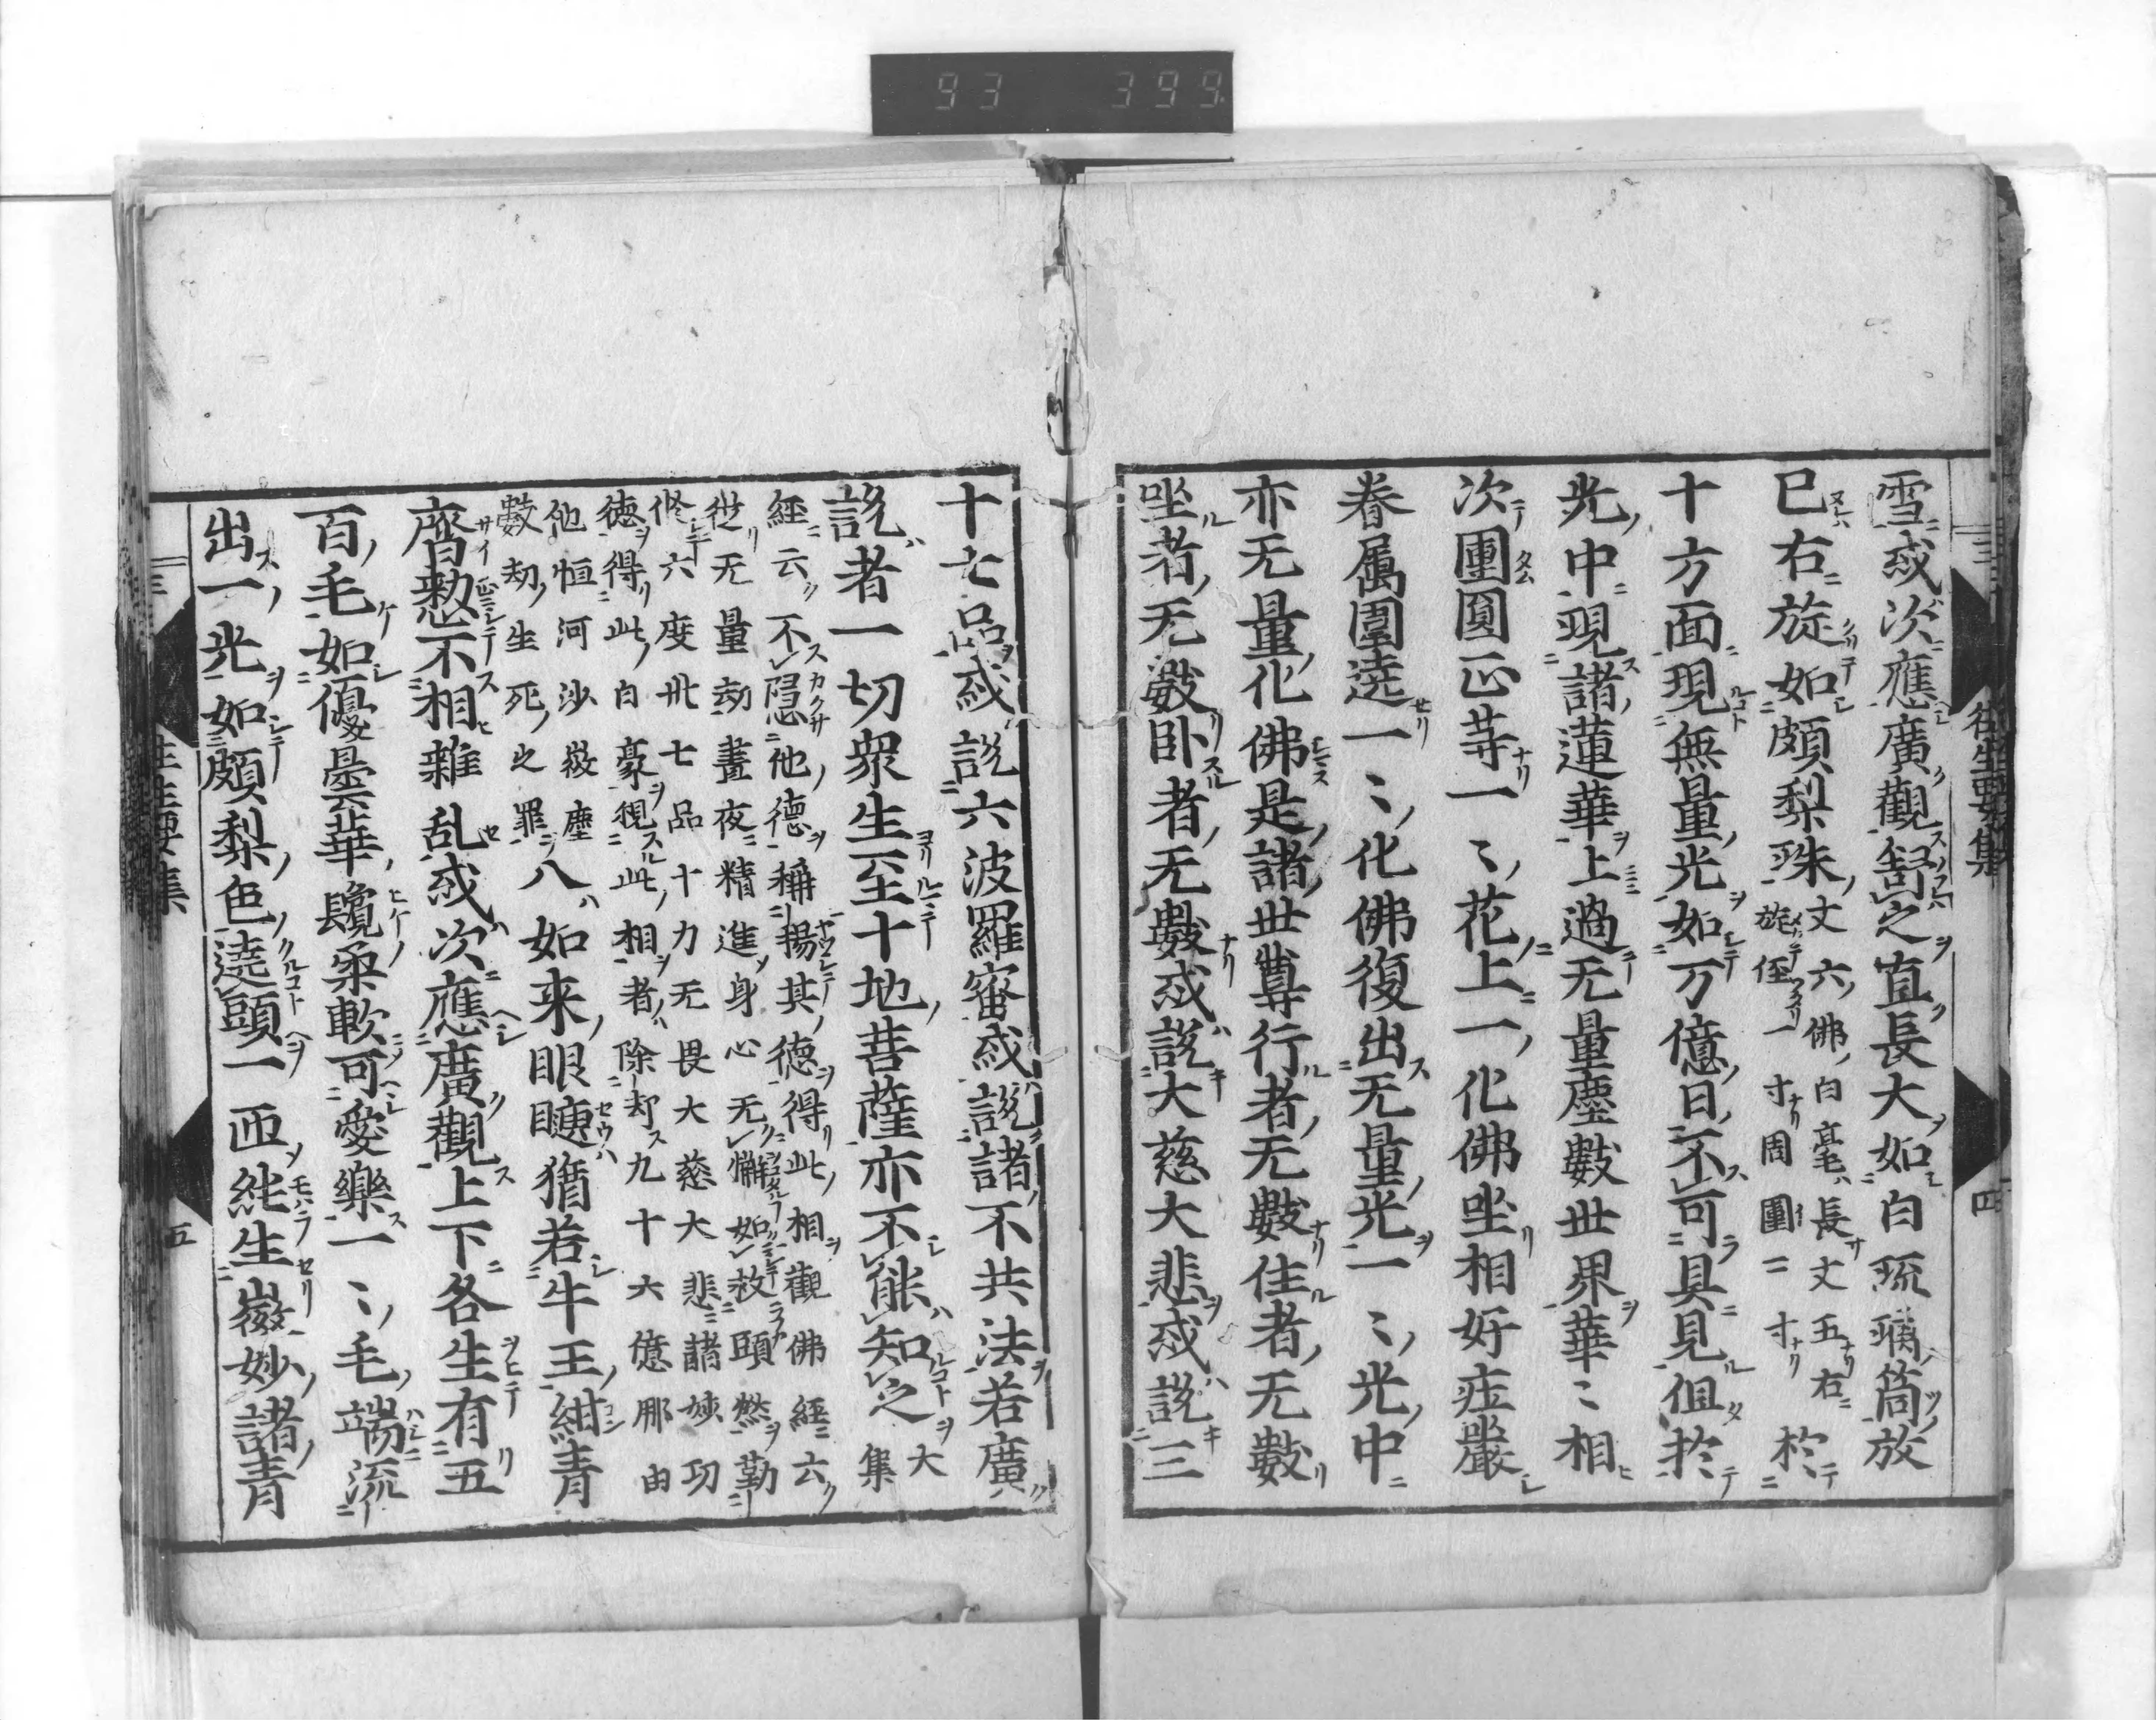 93 399
往生要集
四
雪或次應廣觀舒之直長大如白琉璃筒放
已右旋如頗梨珠丈六佛白毫長丈五右
旋徑一寸周圍三寸於
十方面現無量光如万億日不可具見但於
光中現諸蓮華上過无量塵數世界華〻相
次團圓正等一〻花上一化佛坐相好莊嚴
眷属圍遶一〻化佛復出无量光一〻光中
亦无量化佛是諸世尊行者无數住者无數
坐者无數卧者无數或説大慈大悲或説三
十七品或説六波羅蜜或説諸不共法若廣
説者一切衆生至十地菩薩亦不能知之大
集
經云不隠他德稱揚其德得此相觀佛經云
從无量劫晝夜精進身心无懈如救頭燃勤
修六度卅七品十力无畏大慈大悲諸妙功
德得此白毫觀此相者除却九十六億那由
他恒河沙微塵
數劫生死之罪八如来眼睫猶若牛王紺青
齊整不相雜乱或次應廣觀上下各生有五
百毛如優曇華鬚柔軟可愛樂一〻毛端流
出一光如頗梨色遶頭一匝純生微妙諸青
往生要集
五